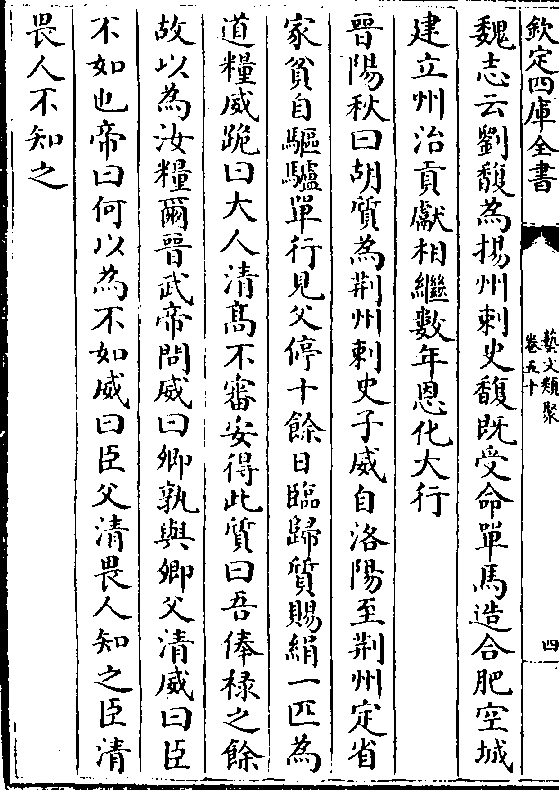 欽定四庫全書
藝文類聚
卷五十
四
魏志云劉馥為揚州刺史馥既受命單馬造合肥空城
建立州治貢獻相繼數年恩化大行
晉陽秋曰胡質為荆州刺史子威自洛陽至荆州定省
家貧自驅驢單行見父停十餘日臨歸質賜絹一匹為
道糧威跪曰大人清髙不審安得此質曰吾俸祿之餘
故以為汝糧爾晉武帝問威曰卿孰與卿父清威曰臣
不如也帝曰何以為不如威曰臣父清畏人知之臣清
畏人不知之